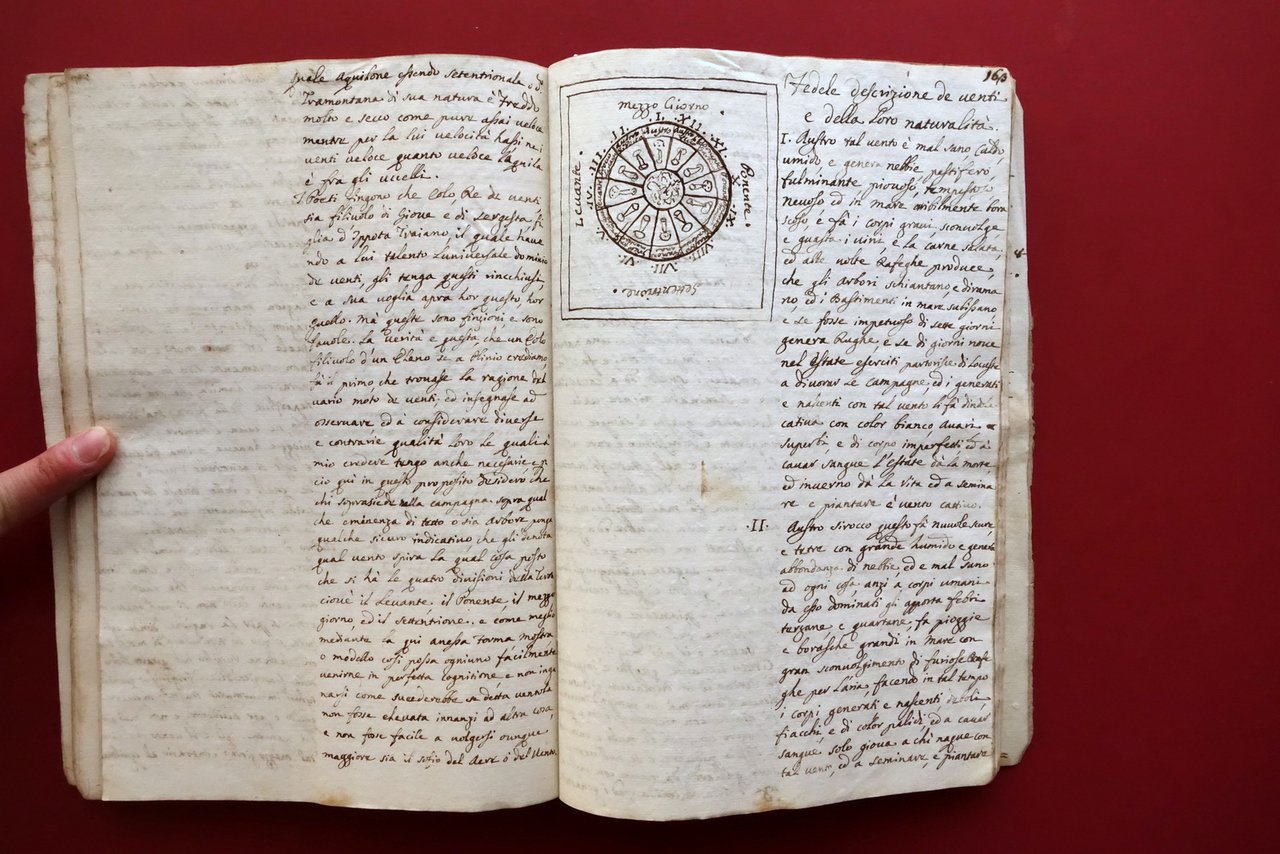 quale Aquilone essendo setentrionale o d.
Tramontana di sua natura è freddo
molto e secco come pure assai veloce
mentre per la lui velocità hassi nei
venti veloce quanto veloce l'aquila
è fra gli uccelli.
I Poeti fingono che Eolo, Re de venti
sia filivolo di Giove e di Sergesta fi
glia d'Ippota Troiano, il quale have
ndo a lui talento l'universale dominio
de venti, gli tenga questi rinchiusi,
e a sua voglia apra hor questo, hor
quello. Mà queste sono finzioni e sono
favole. La verità e questa che un Eolo
filivolo d'un Eleno se a Plinio crediamo
fà il primo, che trovasse la ragione del
vario moto de venti, ed insegnase ad
osservare ed à considerare diverse
e contrarie qualità loro le quali à
mio credere tengo anche necesarie e p
cio qui in questo proposito desiderò che
chi soprasiede nella campagna sopra qual
che eminenza di tetto o sia arbore ponga
qualche sicuro indicativo che gli denota
qual vento spira la qual cosa posto
che si hà le quatro divisioni della Terra
ciovè il Levante, il Ponente, il mezzo
giorno, ed il settentione, e come meglio
mediante la qui anessa forma mostra
o modello cosi possa ogniuno facilmente
venirne in perfetta cognitione e non inga
narsi come sucederebbe se detta ventola
non fosse elevata innanzi ad altra cosa,
e non fose facile a volgersi ounque
maggiore sia il sofio del Aere o del Vento.
mezzo Giorno.
Levante.
Ponente.
Settentrione.
I. II. III. IV. V. VI. VII. VIII. IX. X. XI. XII.
163
Fedele descrizione de venti
e della loro naturalità.
I. Austro tal vento è mal sano, Caldo
umido e genera nebbie, pestifero,
fulminante, piovoso, tempestoso
nevoso ed in mare oribilmente bora
scoso, e fà i corpi gravi, sconvolge
e guasta i vini, e la carne salata,
ed alle volte Rafeghe produce,
che gli Arbori schiantano, e dirama
no, ed i Bastimenti in mare subissano
e se fosse impetuoso di sette giorni
genera Rughe, e se di giorni nove
nel Estate eserciti partorisse di Locuste
a divorar le campagne, ed i generati
e nascenti con tal vento li fà
cativa con color bianco avari e
superbi, e di corpo imperfetti ed à
cavar sangue l'Estate dà la morte,
ed inverno dà la vita ed a semina
re e piantare è vento cattivo.
.II. Austro sirocco questo fà nuvole scure,
e tetre con grande humido e genera
abbondanza di nebbie, ed e mal sano
ad ogni cosa anzi à corpi umani
da esso dominati gli apporta febri
terzane e quartane, fà pioggie
e borasche grandi in Mare con
gran sconvolgimento di furiose Rafe
ghe per l'aria, facendo in tal tempo
i corpi generati e nascenti deboli,
fiacchi, e di color palidi, ed a cavar
sangue solo giova a chi naque con
tal vento, ed a seminare, e piantare